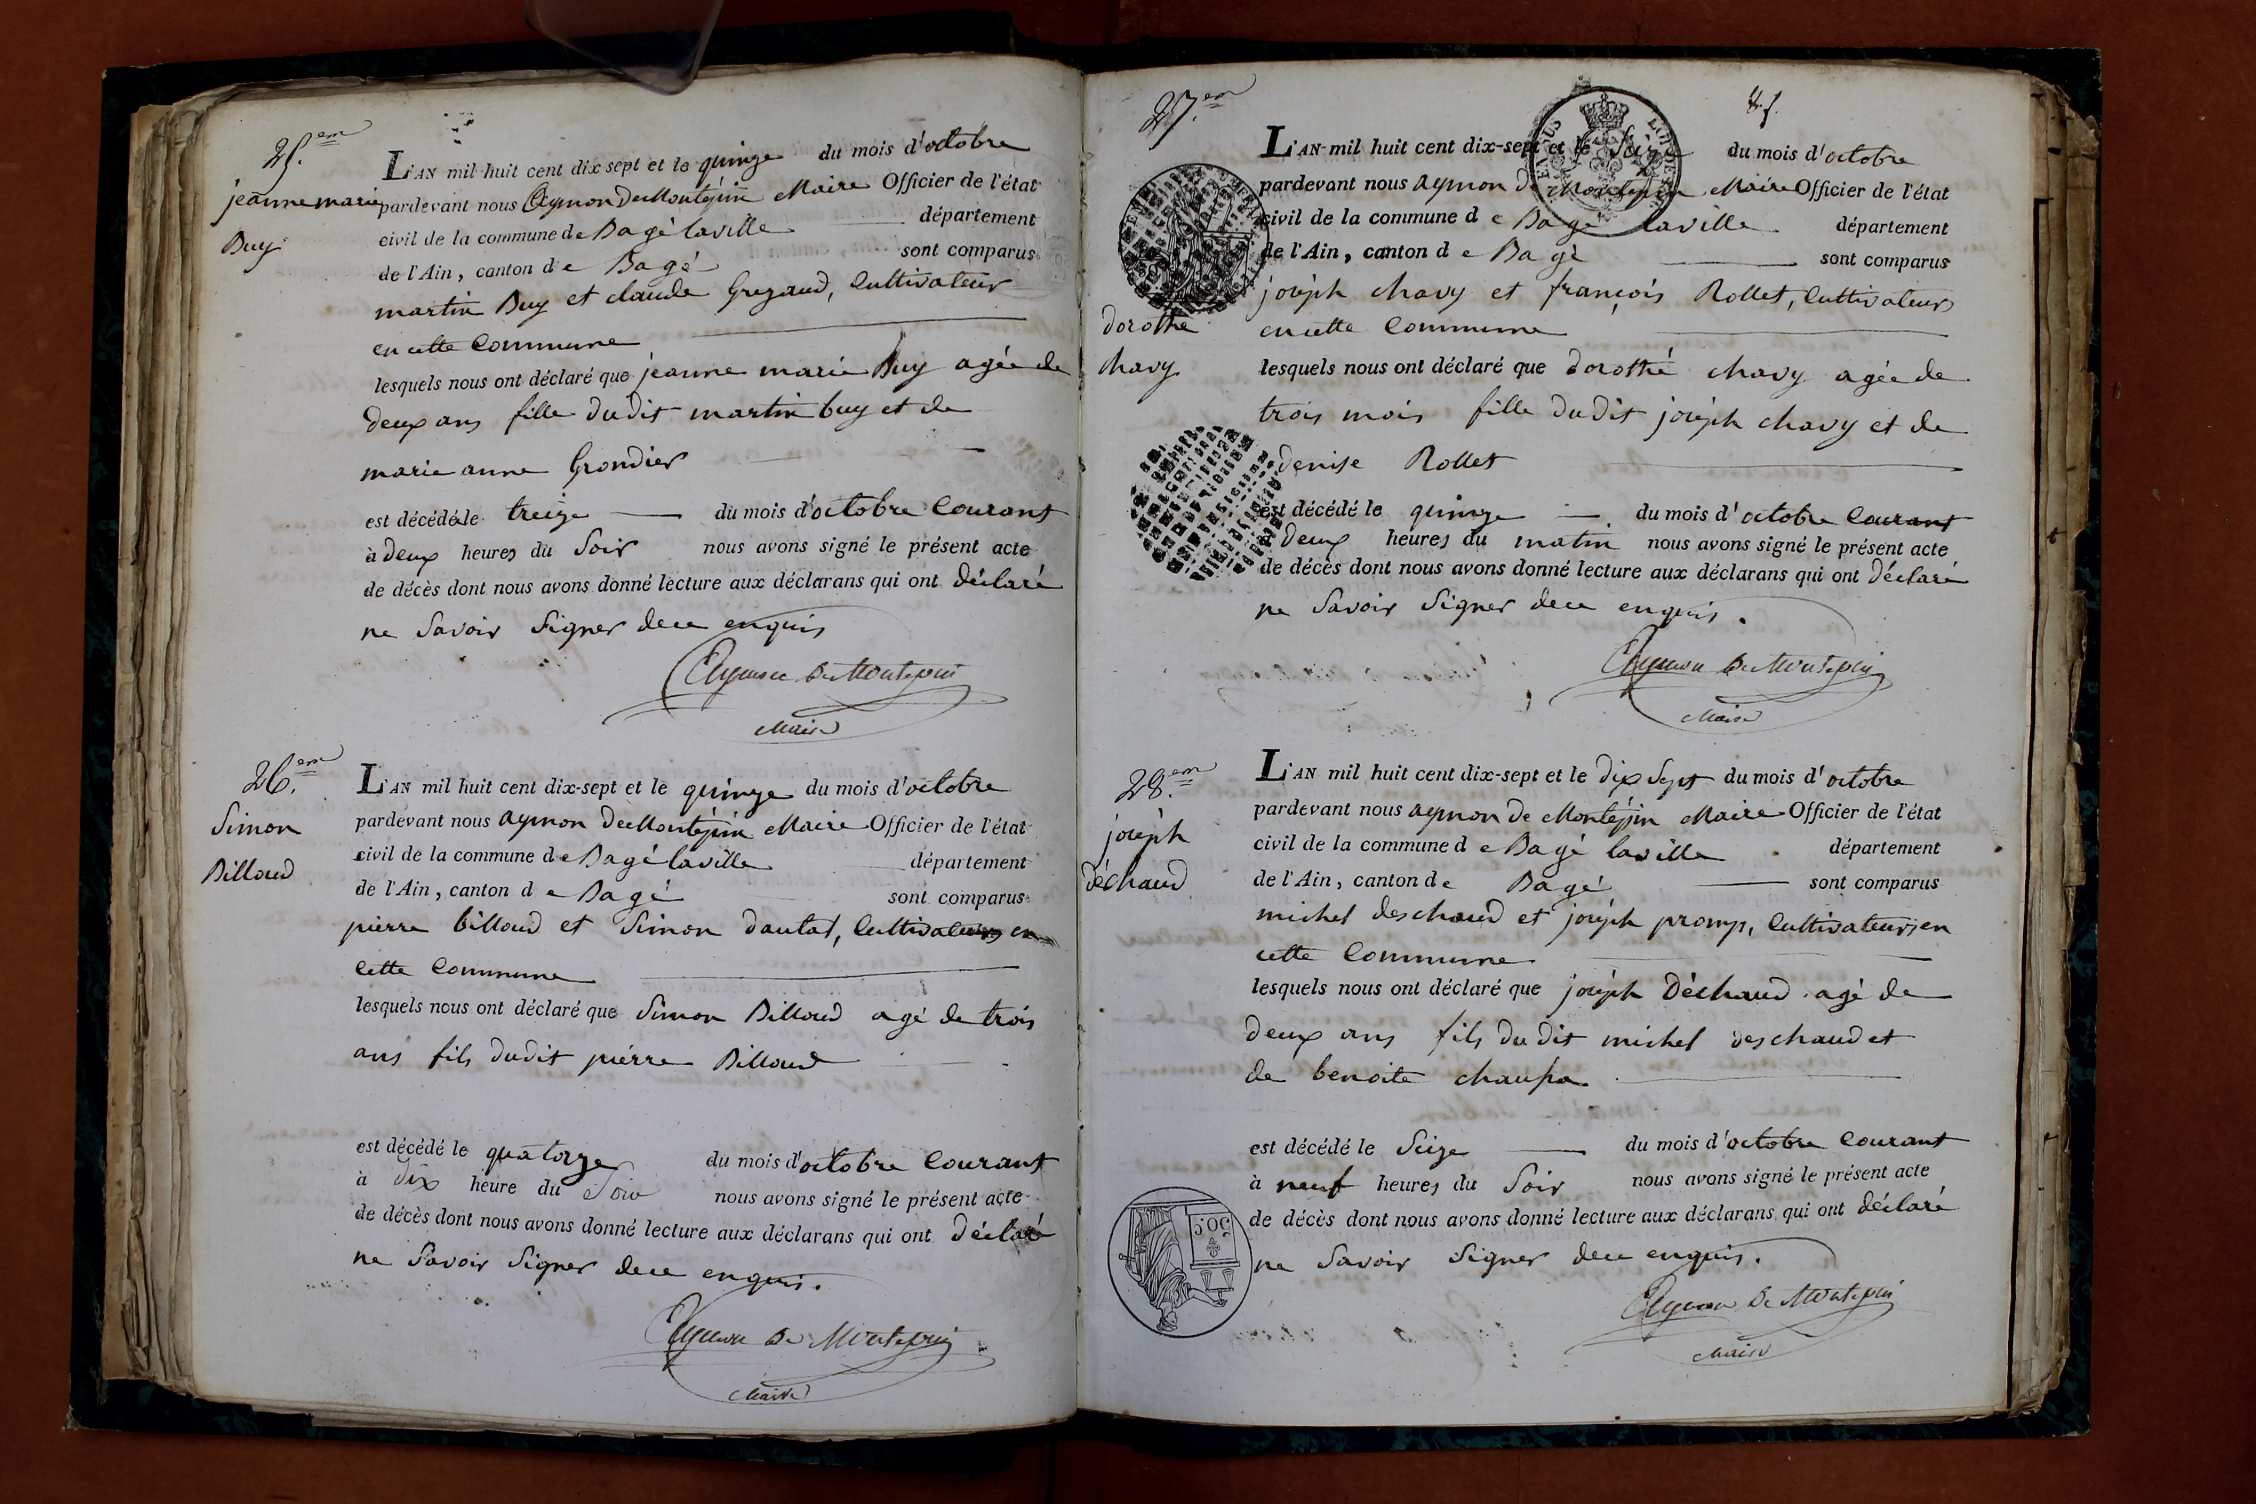 25.em
jeanne marie
Buy
L'AN mil huit cent dix sept et le quinze du mois d'octobre
pardevant nous Aymon De Montépin Maire Officier de l'état
civil de la commune de Bagé laville département
de l'Ain, canton de Bagé sont comparus
martin Buy et claude Grezaud, Cultivateur
en cette Commune
lesquels nous ont déclaré que jeanne marie Buy agée de
deux ans fille dudit martin buy et de
marie anne Grondier
est décédé le treize du mois d'octobre Courant
à deux heures du Soir nous avons signé le présent acte
de décès dont nous avons donné lecture aux déclarans qui ont déclaré
ne Savoir Signer de ce enquis
Aymon De Montepin
Maire
26.em
Simon
Billoud
L'AN mil huit cent dix-sept et le quinze du mois d'octobre
pardevant nous aymon De Montépin Maire Officier de l'état
civil de la commune de Bagé laville département
de l'Ain, canton de Bagé sont comparus
pierre billoud et Simon dautat, Cultivateurs en
cette Commune
lesquels nous ont déclaré que Simon Billoud agé de trois
ans fils dudit piérre Billoud
est décédé le quatorze du mois d'octobre Courant
à dix heure du Soir nous avons signé le présent acte
de décès dont nous avons donné lecture aux déclarans qui ont déclaré
ne Savoir Signer de ce enquis.
Aymon De Montepin
Maire
27.em
dorothé
chavy
L'AN mil huit cent dix-sept et le Seize du mois d'octobre
pardevant nous aymon De Montépin Maire Officier de l'état
civil de la commune de Bagé laville département
de l'Ain, canton de Bagé sont comparus
joséph chavy et françois Rollet, Cultivateurs
en cette Commune
lesquels nous ont déclaré que dorothé chavy agée de
trois mois fille dudit joséph chavy et de
denise Rollet
est décédé le quinze du mois d'octobre Courant
à deux heures du matin nous avons signé le présent acte
de décès dont nous avons donné lecture aux déclarans qui ont déclaré
ne Savoir Signer de ce enquis.
Aymon De Montepin
Maire
28.em
joséph
déchaud
L'AN mil huit cent dix-sept et le dix Sept du mois d'octobre
pardevant nous aymon De Montépin Maire Officier de l'état
civil de la commune de Bagé laville département
de l'Ain, canton de Bagé sont comparus
michel deschaud et joséph promp, Cultivateurs en
cette Commune
lesquels nous ont déclaré que joséph Déchaud agé de
deux ans fils dudit michel deschaud et
de benoite
est décédé le Seize du mois d'octobre Courant
à neuf heures du Soir nous avons signé le présent acte
de décès dont nous avons donné lecture aux déclarans qui ont déclaré
ne Savoir Signer de ce enquis.
50C
Aymon De Montepin
Maire